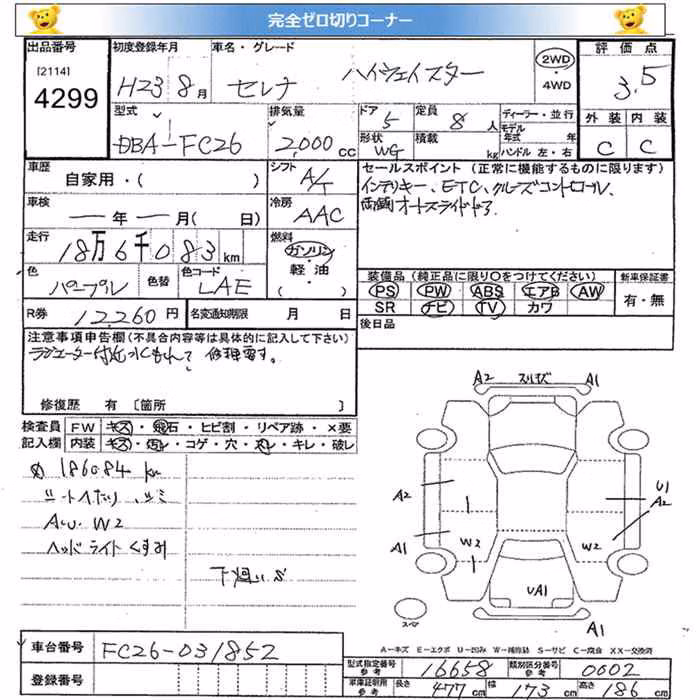 完全ゼロ切りコーナー
出品番号 初度登録年月 車名・グレード 2WD・4WD 評価点
[2114] 4299 H23 8月 セレナ ハイウェイスター 3.5
型式 排気量 ドア 定員 ディーラー・並行 外装 内装
DBA-FC26 2,000cc 5 8人 モデル年式 年
形状 WG 積載 kg ハンドル 左・右 C C
車歴 シフト セールスポイント (正常に機能するものに限ります)
自家用・( ) A/T インテリキー、ETC、クルーズコントロール、
車検 冷房 両側オートスライドドア
ー年ー月(ー日) AAC
走行 燃料
18万6千083km ガソリン・軽・油・( )
色 色替 色コード 装備品 (純正品に限り○をつけてください) 新車保証書
パープル LAE PS PW ABS エアB AW 有・無
SR ナビ TV カワ
R券 12,260円 名変通知期限 月 日 後日品
注意事項申告欄(不具合内容等は具体的に記入して下さい)
ラジエーター付近水もれて 修理要す。
修復歴 有 [箇所 ]
検査員 FW キズ・飛石・ヒビ割・リペア跡・×要
記入欄 内装 キズ・汚レ・コゲ・穴・スレ・キレ・破レ
186084 km
シートヘたり、シミ
A.U. W2
ヘッドライトくすみ
下廻りS
A2 スリキズ A1
A2 U1 A2
A1 W2 W2
UA1
スペア A1
A-キズ E-エクボ U-凹み W-補修跡 S-サビ C-腐食 XX-交換済
車台番号 FC26-031852
型式指定番号 参考 16658 類別区分番号 参考 0002
登録番号
車庫証明用 参考 長さ 477cm 幅 173cm 高さ 186cm